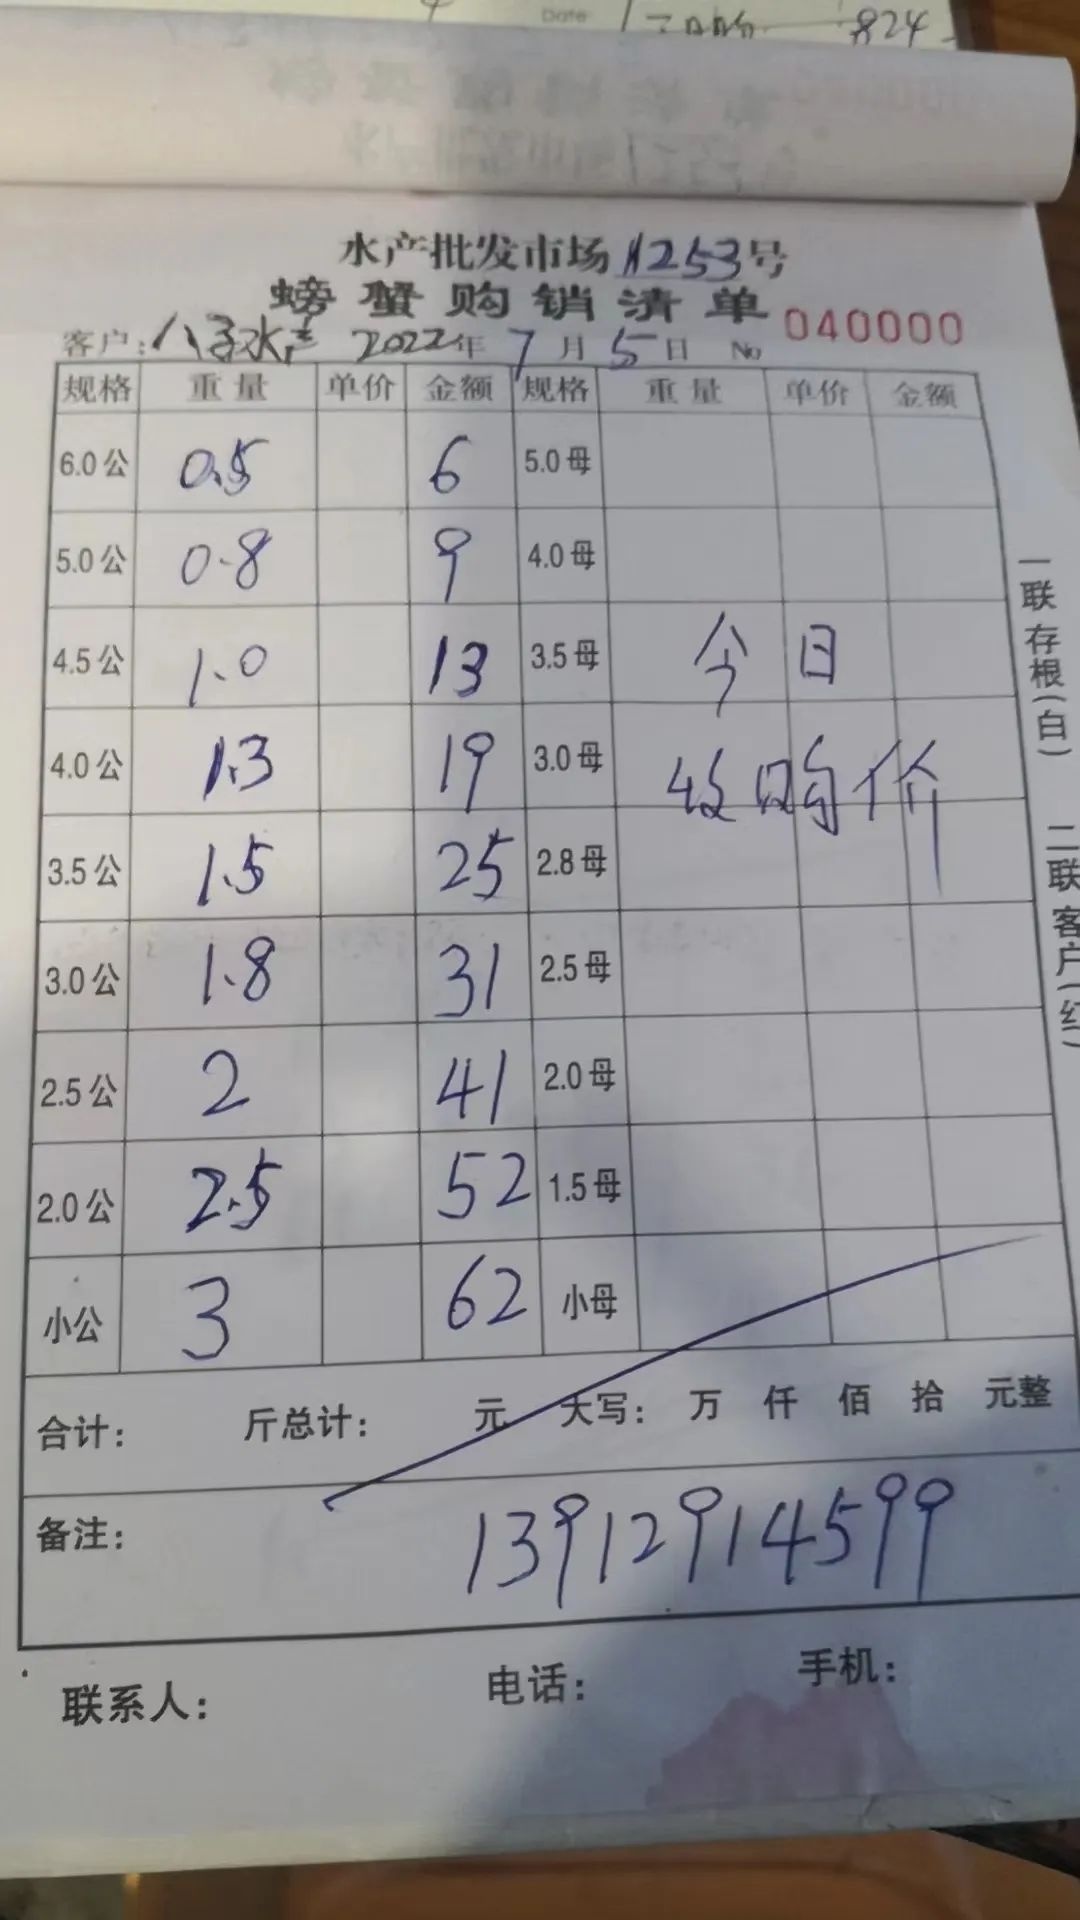 Date
824
水产批发市场1253号
螃蟹购销清单 040000
客户: 八子水产 2022年 7月 5日 No
规格 重量 单价 金额 规格 重量 单价 金额
6.0公 0.5 6 5.0母
5.0公 0.8 9 4.0母
4.5公 1.0 13 3.5母 今日
4.0公 1.3 19 3.0母 收购价
3.5公 1.5 25 2.8母
3.0公 1.8 31 2.5母
2.5公 2 41 2.0母
2.0公 2.5 52 1.5母
小公 3 62 小母
合计: 斤总计: 元 大写: 万 仟 佰 拾 元整
备注: 13912914599
联系人: 电话: 手机:
一联存根(白)
二联客户(红)